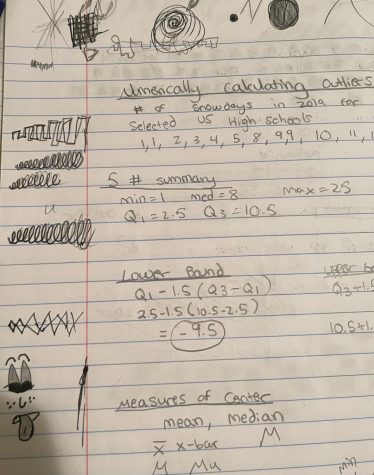 Numerically calculating outliers
# of snowdays in 2019 for
selected US High schools
1,1, 2, 3, 4, 5, 8, 9,9, 10, 11, 1
5 # summary
min=1 med=8 max=25
Q1=2.5 Q3=10.5
Lower Bound
Q1-1.5(Q3-Q1)
2.5-1.5(10.5-2.5)
= -9.5
upper Bo
Q3+1.5
10.5+1.
Measures of center
mean, median
x̄ x-bar M
μ Mu